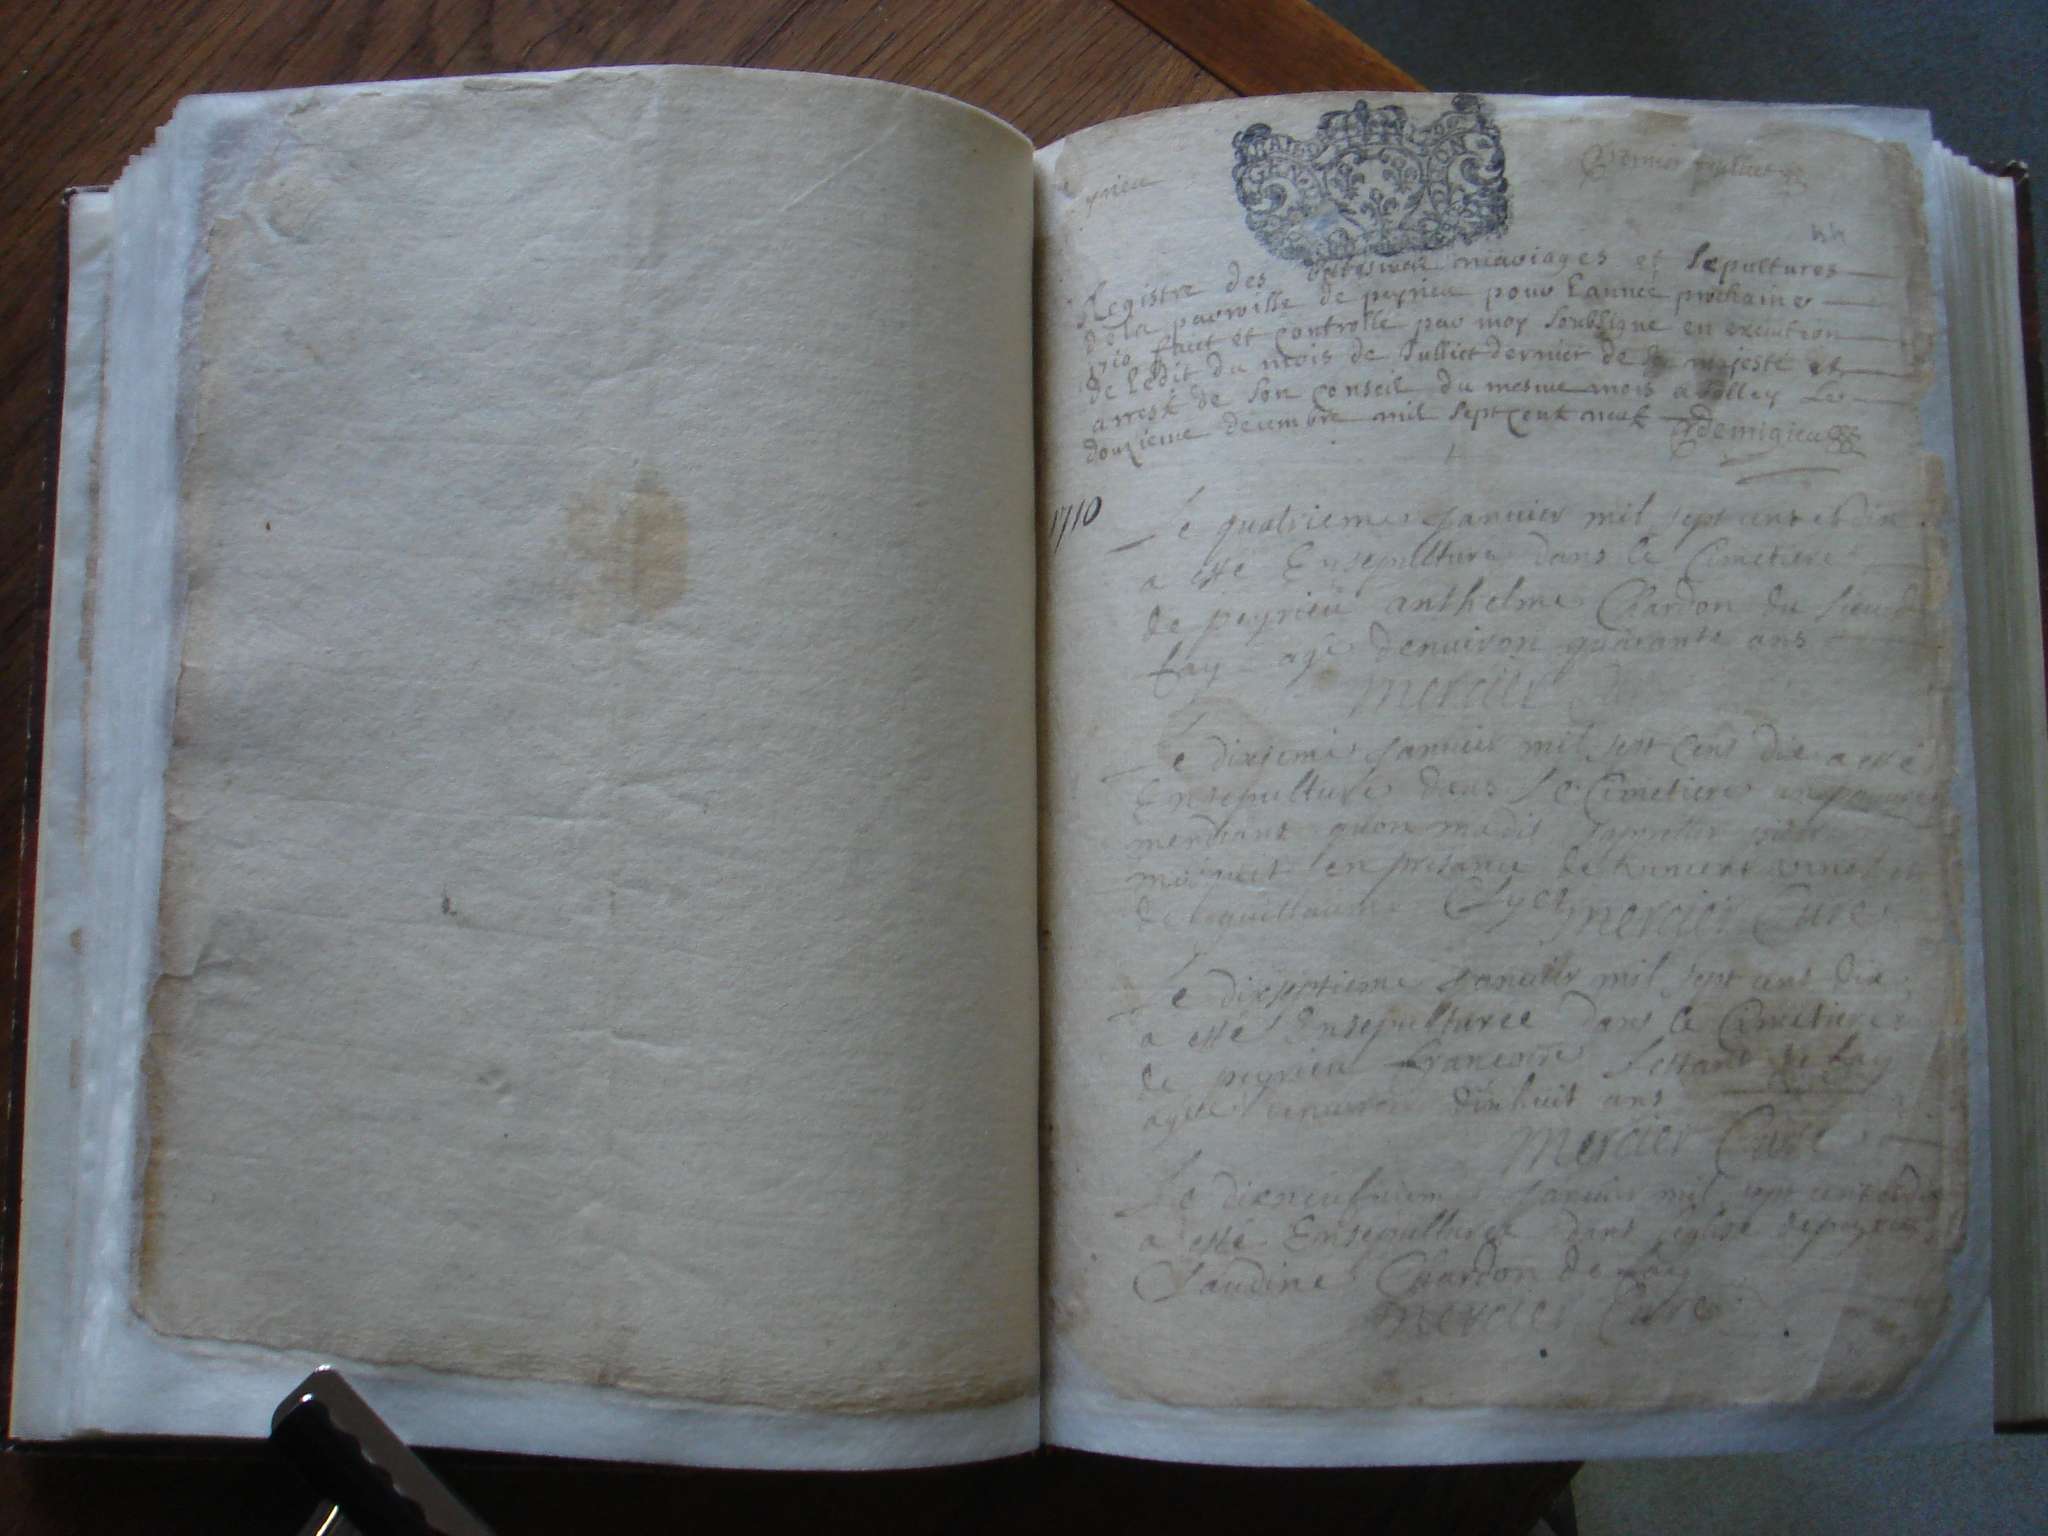 Peyrieu
Premier feuillet
hh
Registre des mariages et sepultures
de la parroisse de peyrieu pour l'année prochaine
1710 faict et controllé par moy soubsigné en execution
de l'edit du mois de Julliet dernier de sa majesté et
arrest de son conseil du mesme mois a Belley le
douzieme decembre mil sept cent neuf Demigieu
1710
Le quatrieme Janvier mil sept cens et dix
a esté Ensepulturé dans le Cimetiere
de peyrieu anthelme Chardon du lieu de
Fay agé denuiron quarante ans
Mercier Curé
Le dixieme Janvier mil sept cens dix a esté
Ensepulturé dans le Cimetiere un pauure
mendiant quon ma dit
en presance de
de guillaume Mercier Curé
Le dixseptieme Janvier mil sept cens dix
a esté Ensepulturée dans le Cimetiere
de peyrieu francoise de Fay
agée denuiron dixhuit ans
Mercier Curé
Le dixneufuieme Janvier mil sept cens et dix
a esté Ensepulturée dans leglise de peyrieu
Claudine Chardon de Fay
Mercier Curé